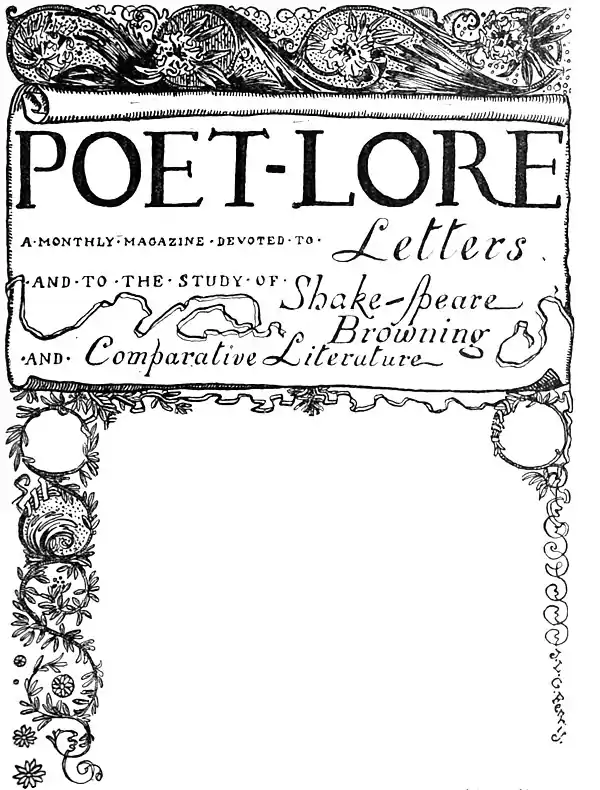 POET-LORE
A·MONTHLY·MAGAZINE·DEVOTED·TO· Letters.
·AND·TO·THE·STUDY·OF· Shake-speare
Browning
·AND· Comparative Literature